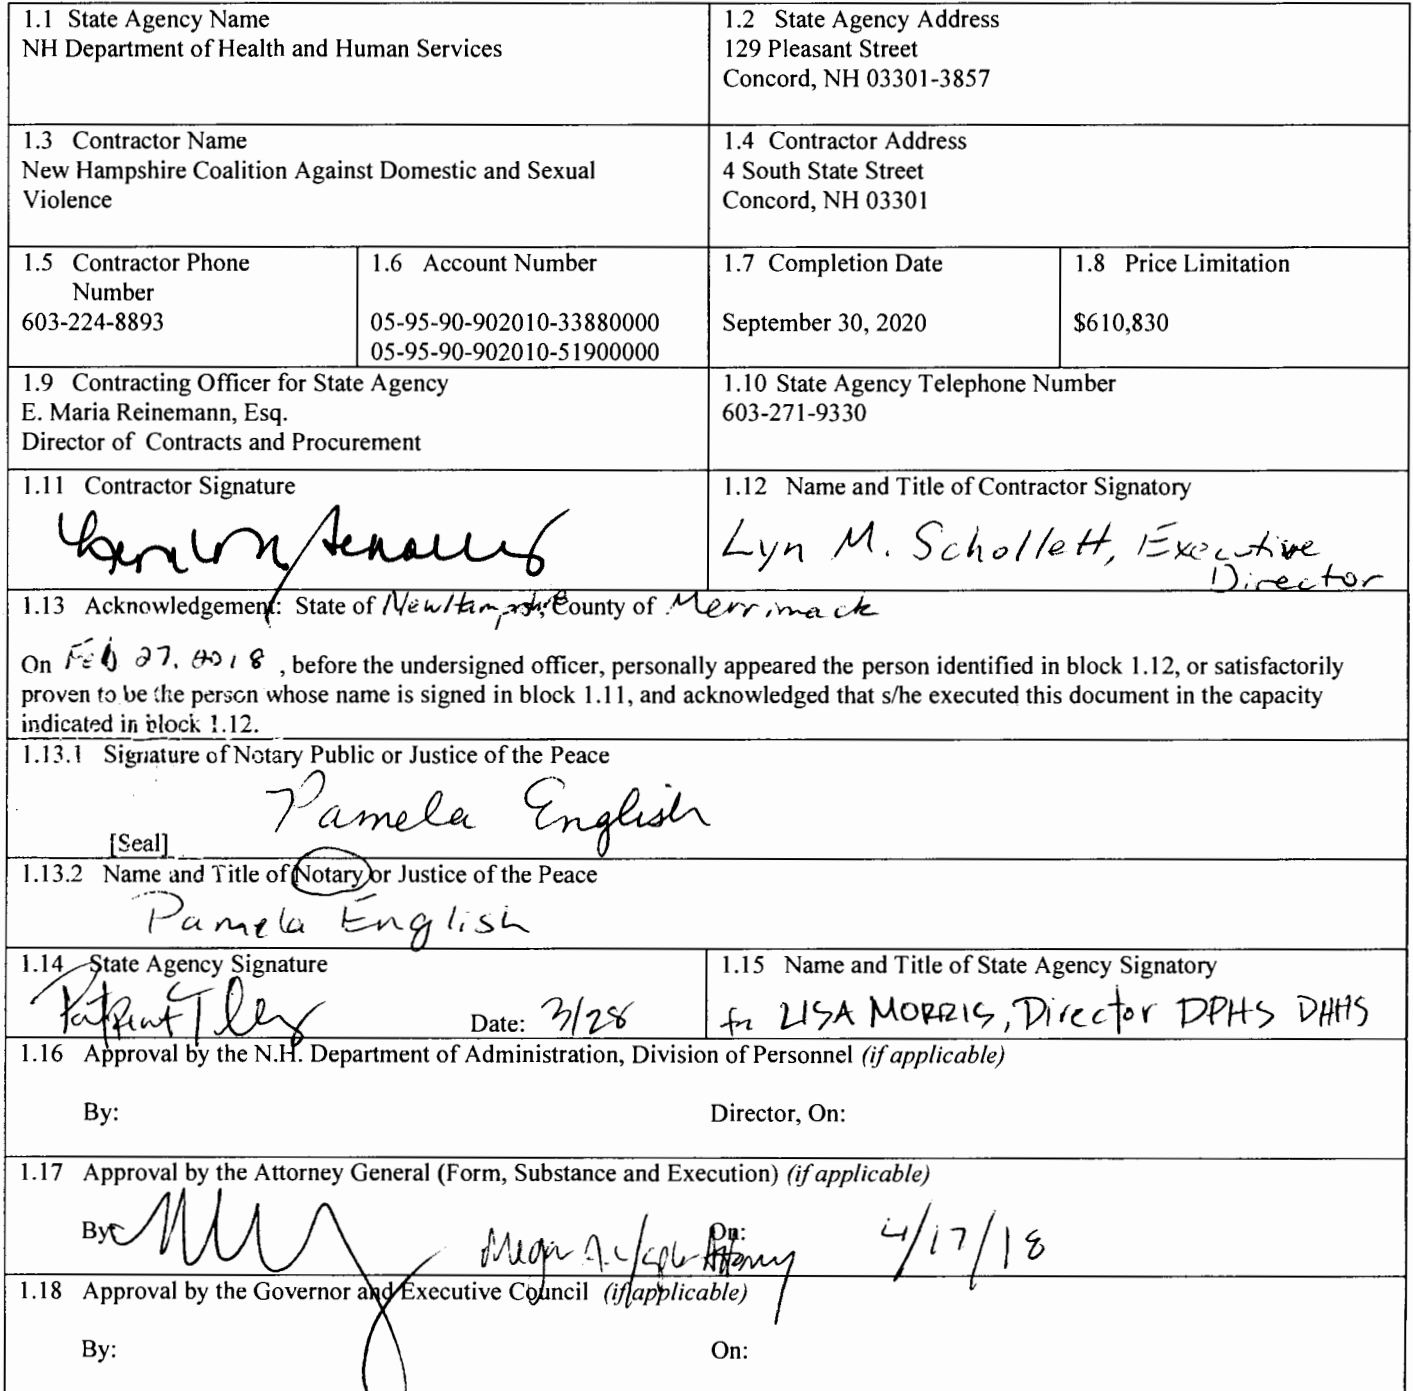 1.1 State Agency Name
NH Department of Health and Human Services
1.2 State Agency Address
129 Pleasant Street
Concord, NH 03301-3857
1.3 Contractor Name
New Hampshire Coalition Against Domestic and Sexual
Violence
1.4 Contractor Address
4 South State Street
Concord, NH 03301
1.5 Contractor Phone
Number
603-224-8893
1.6 Account Number
05-95-90-902010-33880000
05-95-90-902010-51900000
1.7 Completion Date
September 30, 2020
1.8 Price Limitation
$610,830
1.9 Contracting Officer for State Agency
E. Maria Reinemann, Esq.
Director of Contracts and Procurement
1.10 State Agency Telephone Number
603-271-9330
1.11 Contractor Signature
1.12 Name and Title of Contractor Signatory
Lyn M. Schollett, Executive
Director
1.13 Acknowledgement: State of New Hampshire, County of Merrimack
On Feb 27, 2018, before the undersigned officer, personally appeared the person identified in block 1.12, or satisfactorily
proven to be the person whose name is signed in block 1.11, and acknowledged that s/he executed this document in the capacity
indicated in block 1.12.
1.13.1 Signature of Notary Public or Justice of the Peace
Pamela English
[Seal]
1.13.2 Name and Title of Notary or Justice of the Peace
Pamela English
1.14 State Agency Signature
Date: 3/28
1.15 Name and Title of State Agency Signatory
for LISA MORRIS, Director DPHS DHHS
1.16 Approval by the N.H. Department of Administration, Division of Personnel (if applicable)
By: Director, On:
1.17 Approval by the Attorney General (Form, Substance and Execution) (if applicable)
By: Megan A. Attorney On: 4/17/18
1.18 Approval by the Governor and Executive Council (if applicable)
By: On: